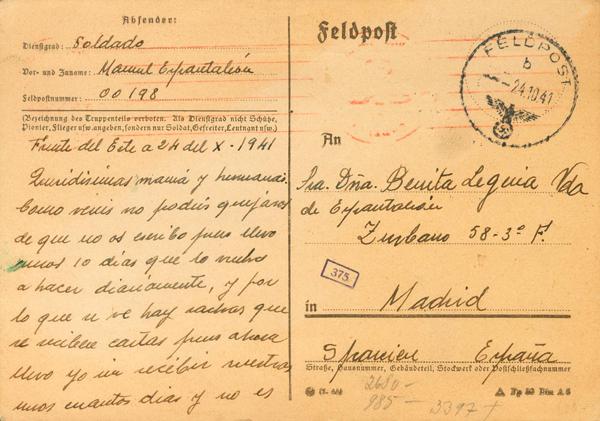 Absender:
Dienstgrad: Soldado
Vor- und Zuname: Manuel Espantaleón
Feldpostnummer: 00198
(Bezeichnung des Truppenteils verboten. Als Dienstgrad nicht Schütze,
Pionier, Flieger usw. angeben, sondern nur Soldat, Gefreiter, Leutnant usw.)
Frente del Este a 24 del X - 1941
Queridisimas mamá y hermanas.
Como veis no podéis quejaros
de que no os escribo pues llevo
unos 10 dias que lo vuelvo
a hacer diariamente, y por
lo que se ve hay rachas que
se reciben cartas pues ahora
llevo yo sin recibir vuestras
unos cuantos dias y no es
Feldpost
FELDPOST
b
24.10.41
An
Sra. Dña. Benita Leguia Vda
de Espantaleón
Zurbano 58-3º F.
375
in Madrid
Spanien España
Straße, Hausnummer, Gebäudeteil, Stockwerk oder Postschließfachnummer
Din A 6
2680-
985-
3397+